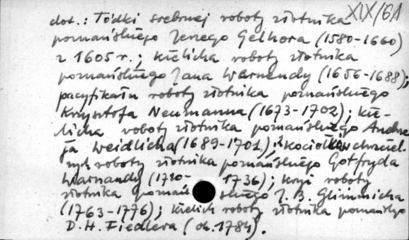 XIX/61
dot.: Łódki srebrnej roboty złotnika
poznańskiego Jerzego Gelhora (1580-1660)
z 1605 r.; kielicha roboty złotnika
poznańskiego Jana Warnendy (1656-1688),
pacyfikału roboty złotnika poznańskiego
Krzysztofa Neumanna (1673-1702); kie-
licha roboty złotnika poznańskiego Andrze-
ja Weidlicha (1689-1701), kociołków chrzciel-
nych roboty złotnika poznańskiego Gotfryda
(1710- 1736); kryż roboty
złotnika poznańskiego J. B.
(1763-1776); kielich roboty złotnika poznańskiego
D. H. Fiedlera (ok. 1784).